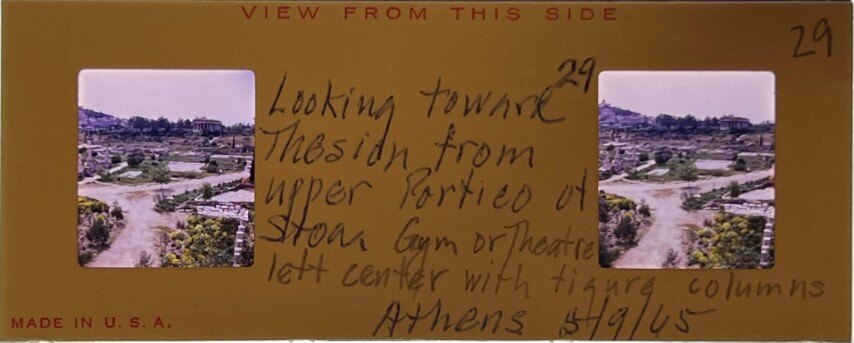 VIEW FROM THIS SIDE
29
29
Looking toward
Thesion from
upper Portico of
Stoa. Gym or Theatre
left center with figure columns
Athens 5/9/65
MADE IN U.S.A.